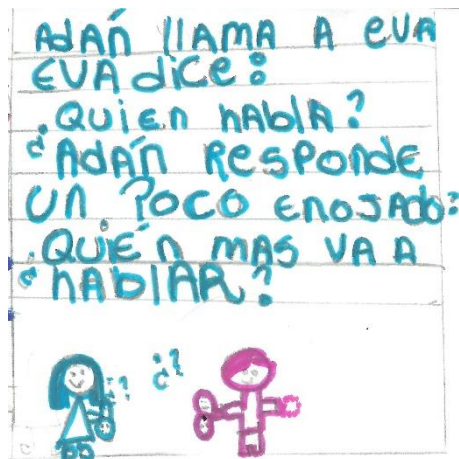 ADÁN llAMA A EVA
EVA dice:
¿Quien hAblA?
ADÁN RESPONDE
UN POCO ENOJADO:
¿QUIÉN MAS VA A
hAblAR?
¿?
¿?